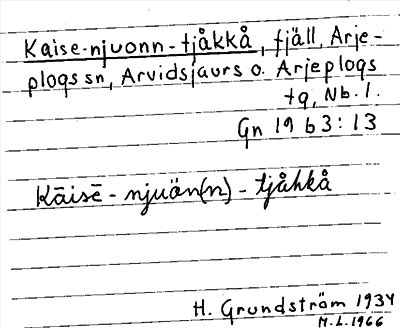 Kaise-njuonn-tjåkkå, fjäll, Arje-
plogs sn, Arvidsjaurs o. Arjeplogs
tg, Nb. l.
Gn 1963:13
Kāisē-njuän(n)-tjåhkå
H. Grundström 1934
M.L. 1966